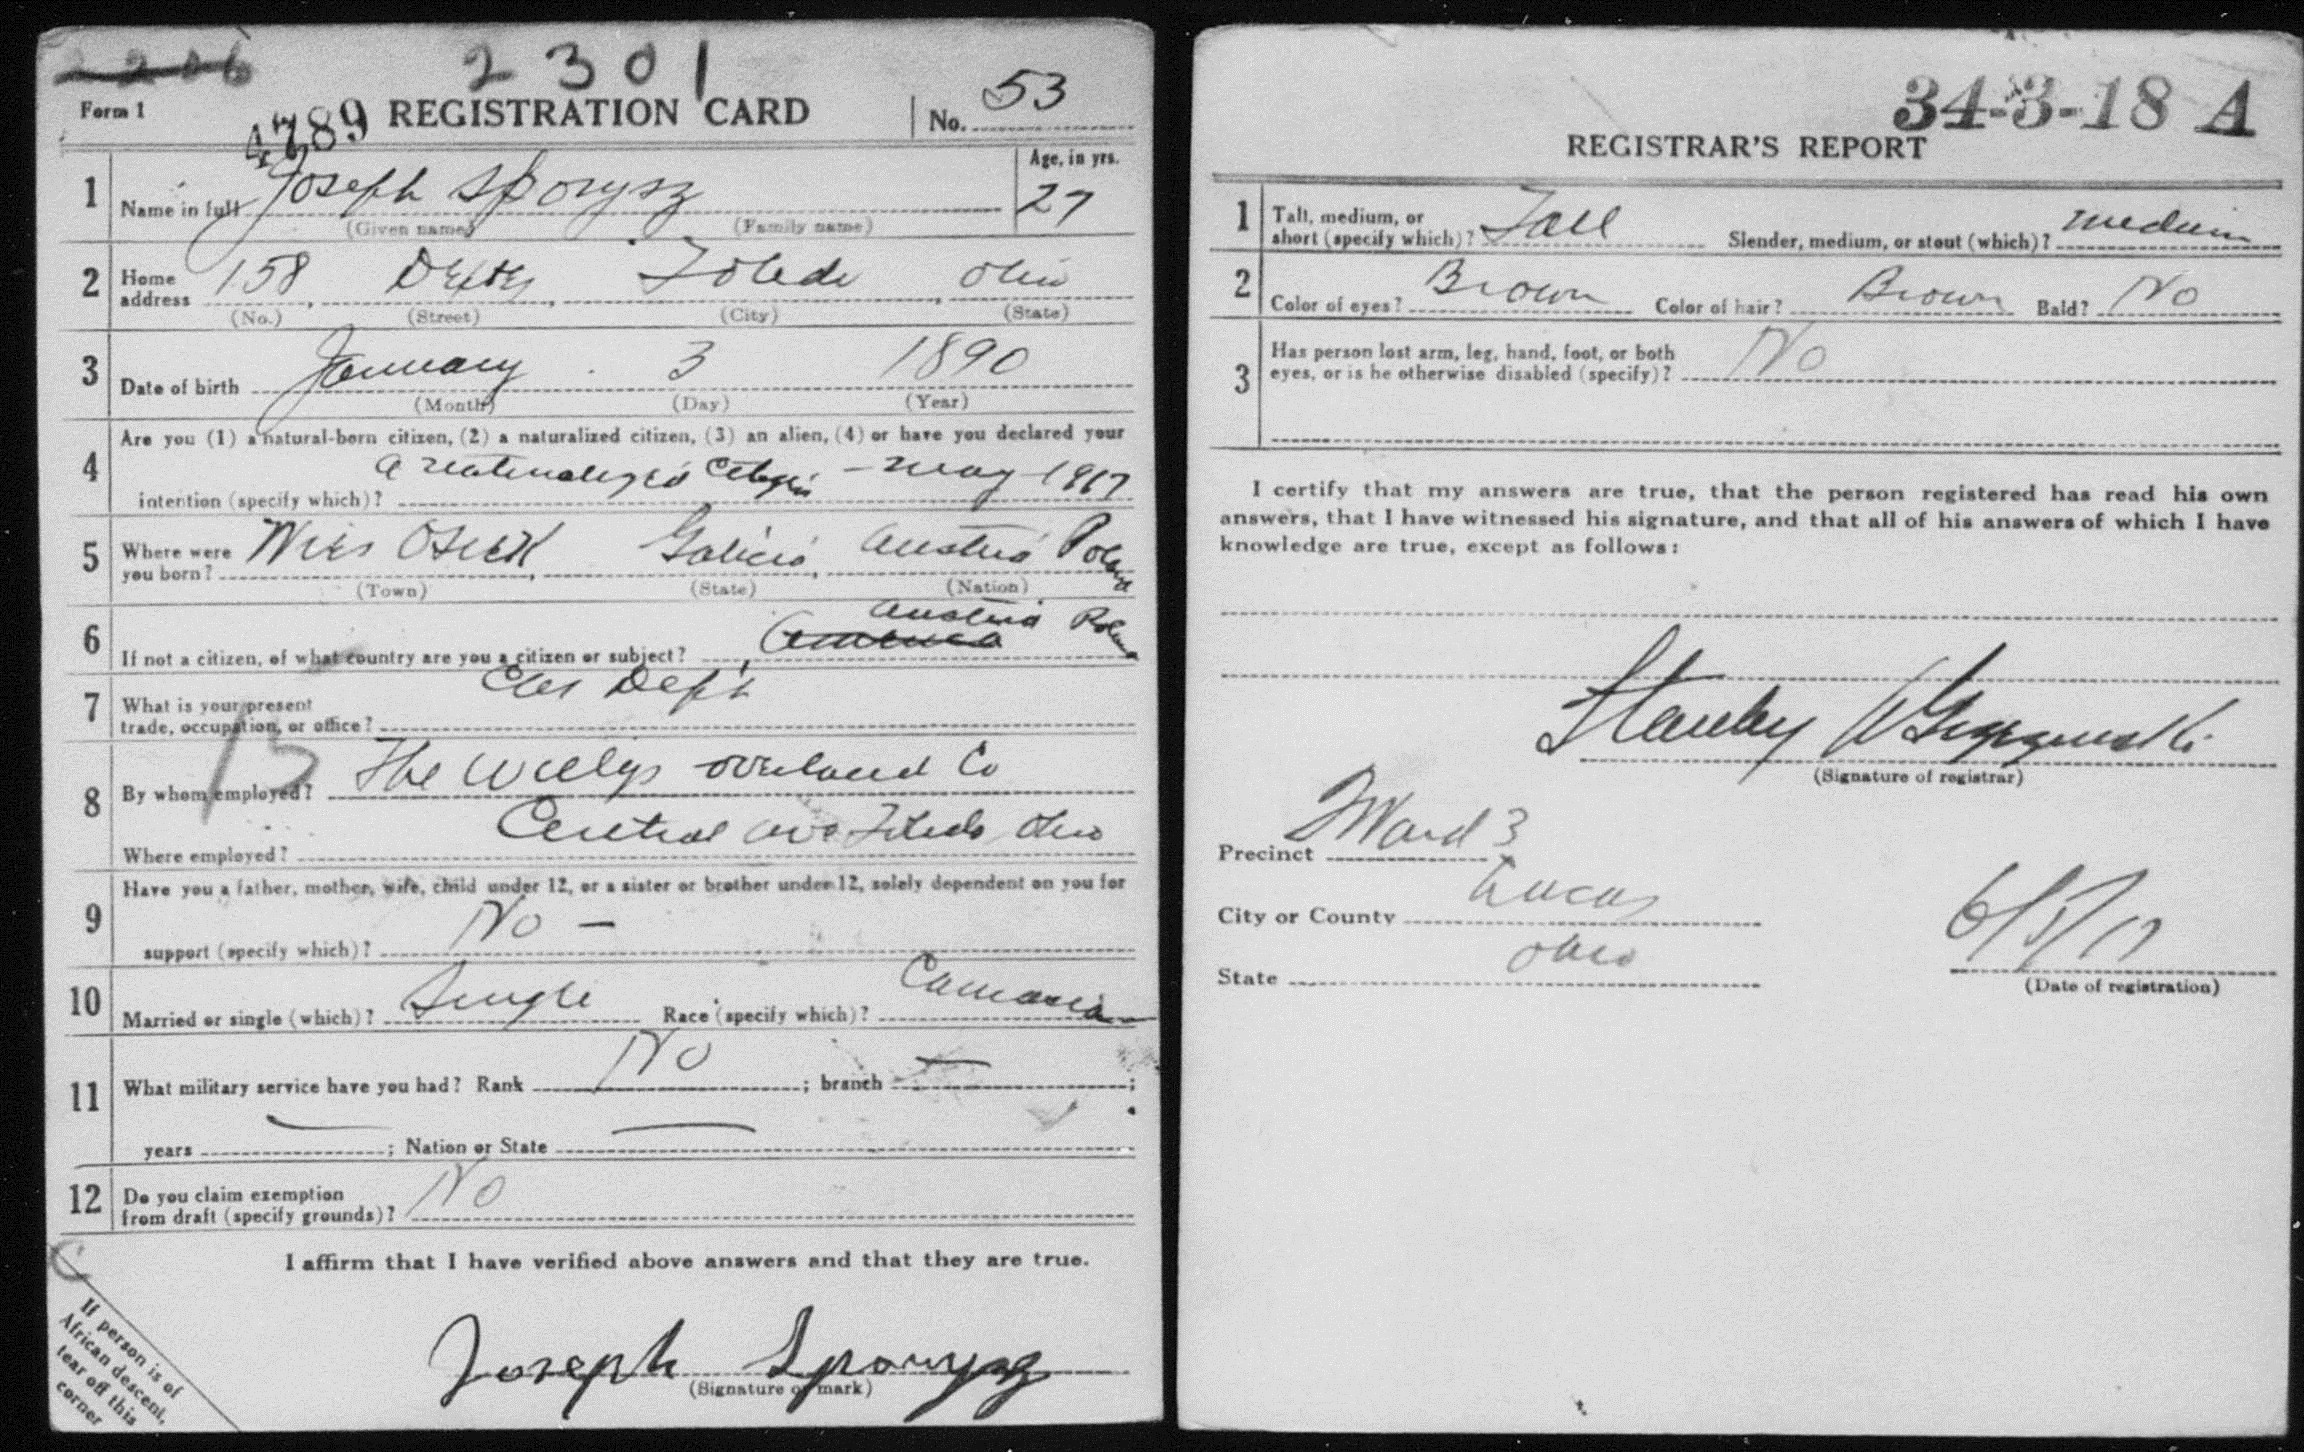 2206 2301
Form 1 4789 REGISTRATION CARD No. 53
1 Name in full Joseph Sporysz Age, in yrs. 27
(Given name) (Family name)
2 Home address 158 Dexter, Toledo, Ohio
(No.) (Street) (City) (State)
3 Date of birth January 3 1890
(Month) (Day) (Year)
4 Are you (1) a natural-born citizen, (2) a naturalized citizen, (3) an alien, (4) or have you declared your
intention (specify which)? a naturalized citizen - May 1917
5 Where were you born? Wies Osiek, Galicia, Austria Poland
(Town) (State) (Nation)
Austria Poland
6 If not a citizen, of what country are you a citizen or subject? America
7 What is your present
trade, occupation, or office? Dept
8 By whom employed? The Willys Overland Co
Where employed? Central ave Toledo Ohio
9 Have you a father, mother, wife, child under 12, or a sister or brother under 12, solely dependent on you for
support (specify which)? No -
10 Married or single (which)? Single Race (specify which)?
11 What military service have you had? Rank No; branch —;
years —; Nation or State —
12 Do you claim exemption
from draft (specify grounds)? No
I affirm that I have verified above answers and that they are true.
Joseph Sporysz
(Signature or mark)
If person is of
African descent,
tear off this
corner
34-3-18 A
REGISTRAR'S REPORT
1 Tall, medium, or
short (specify which)? Tall Slender, medium, or stout (which)? medium
2 Color of eyes? Brown Color of hair? Brown Bald? No
3 Has person lost arm, leg, hand, foot, or both
eyes, or is he otherwise disabled (specify)? No
I certify that my answers are true, that the person registered has read his own
answers, that I have witnessed his signature, and that all of his answers of which I have
knowledge are true, except as follows:
Stanley
(Signature of registrar)
Precinct Ward 3
City or County Lucas
State Ohio 6/5/17
(Date of registration)